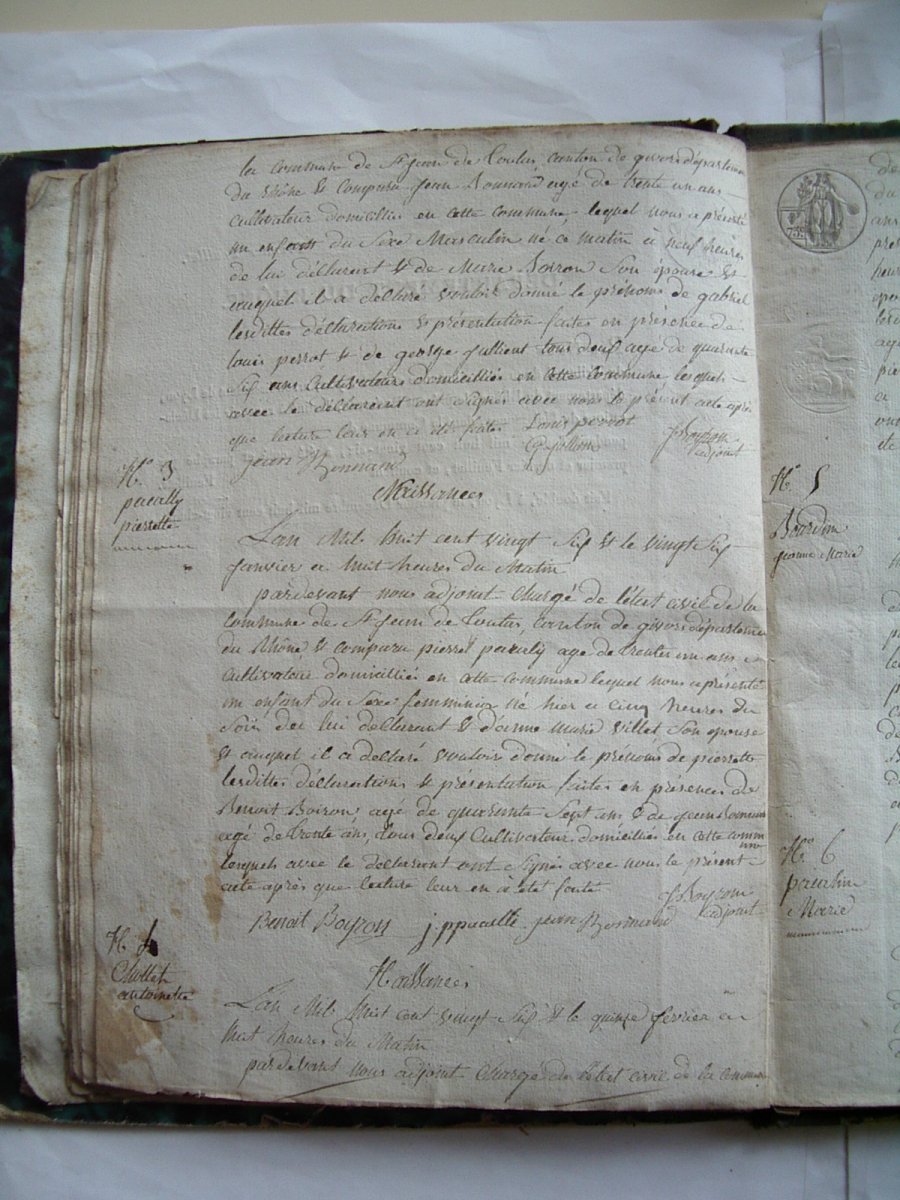 la commune de St Jean de Toulas, canton de givors département
du Rhône est comparu Jean Bonnard agé de trente un ans
cultivateur domicilliés en cette commune, lequel nous a présenté
un enfant du sexe Masculin né ce matin à neuf heures
de lui déclarant & de Marie Boiron son épouse &
auquel il a déllaré vouloir donné le prénoms de gabriel
lesdittes déclarations & présentation faites en présence de
louis perrot & de george jullient tous deux agé de quarante
six ans cultivateurs domicilliés en cette commune lesquels
avec le déllarant ont signés avec nous le présent acte après
que lecture leur en a été faite Louis perrot
G jullien J Boyron
adjoint
jean Bonnard
N° 3
paually
pierrette
Naissances
L'an Mil huit cent vingt six & le vingt six
janvier a huit heures du Matin
pardevant nous adjoint Chargé de l'état civil de la
commune de St Jean de Toulas, canton de givors département
du Rhône & comparu pierre paually agé de trente un ans
cultivateur domicilliés en cette commune lequel nous a présenté
un enfant du sexe femminin né hier a cinq heures du
soir de lui déllarant & d'anne marie villet son épouse
& auquel il a dellaré vouloir donné le prénoms de pierrette
lesdittes déllarations & présentation faites en présences de
Benoit Boiron, agé de quarante sept ans & de jean Bonnard
agé de trente ans, tous deux cultivateur domicilliés en cette commune
lesquels avec le déllarant ont signés avec nous le présent
acte après que lecture leur en a étét faite
J Boyron
adjoint
Benoit Boyron j p puculle jean Bonnard
N.
Chollet
antoinette
Naissances
L'an Mil huit cent vingt six & le quinze fevrier a
huit heures du Matin
pardevant nous adjoint Chargé de l'état civil de la commune
N° 5
Bourdin
jeanne Marie
N° 6
Marie